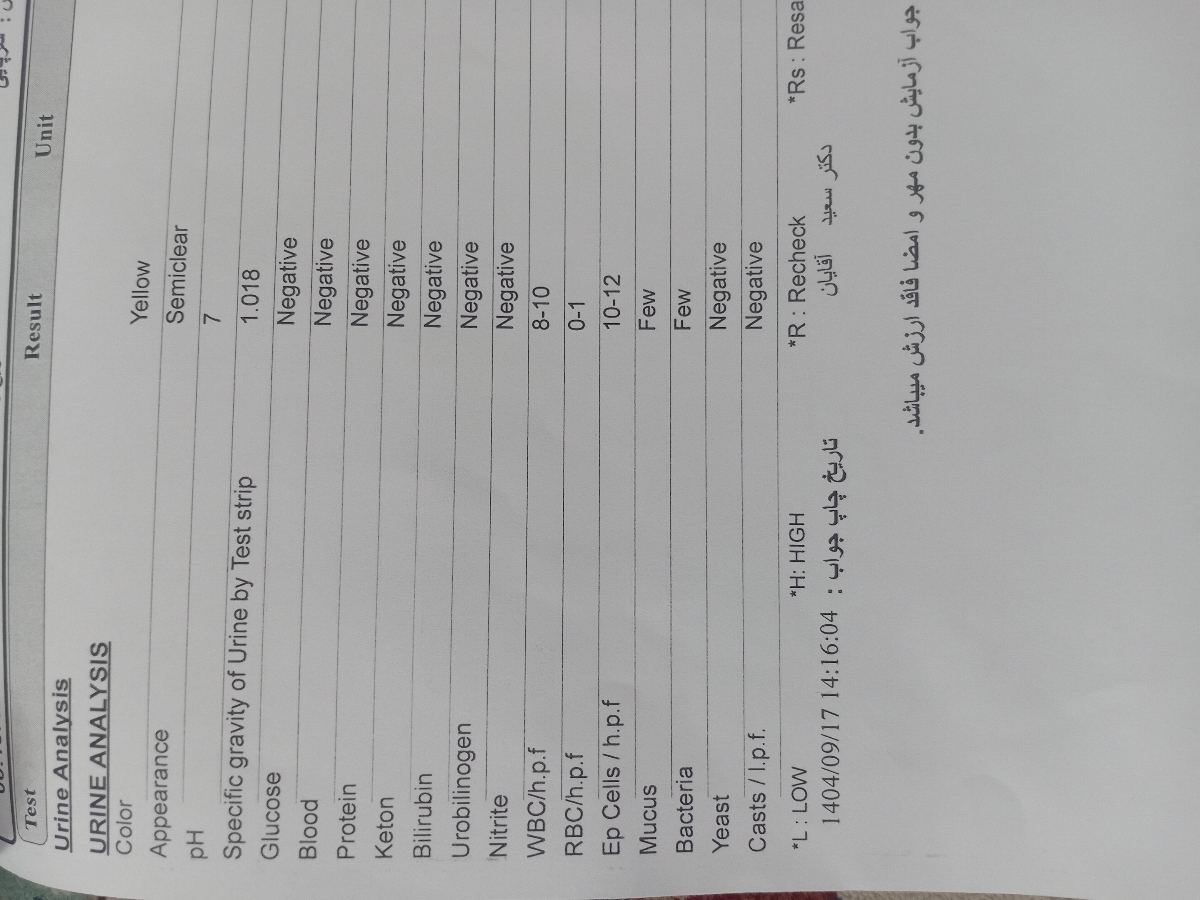 Test Result Unit
Urine Analysis
URINE ANALYSIS
Color Yellow
Appearance Semiclear
pH 7
Specific gravity of Urine by Test strip 1.018
Glucose Negative
Blood Negative
Protein Negative
Keton Negative
Bilirubin Negative
Urobilinogen Negative
Nitrite Negative
WBC/h.p.f 8-10
RBC/h.p.f 0-1
Ep Cells / h.p.f 10-12
Mucus Few
Bacteria Few
Yeast Negative
Casts / l.p.f. Negative
*L : LOW *H: HIGH *R : Recheck *Rs : Resa
تاریخ چاپ جواب : 1404/09/17 14:16:04
دکتر سعید آقایان
جواب آزمایش بدون مهر و امضا فاقد ارزش میباشد.